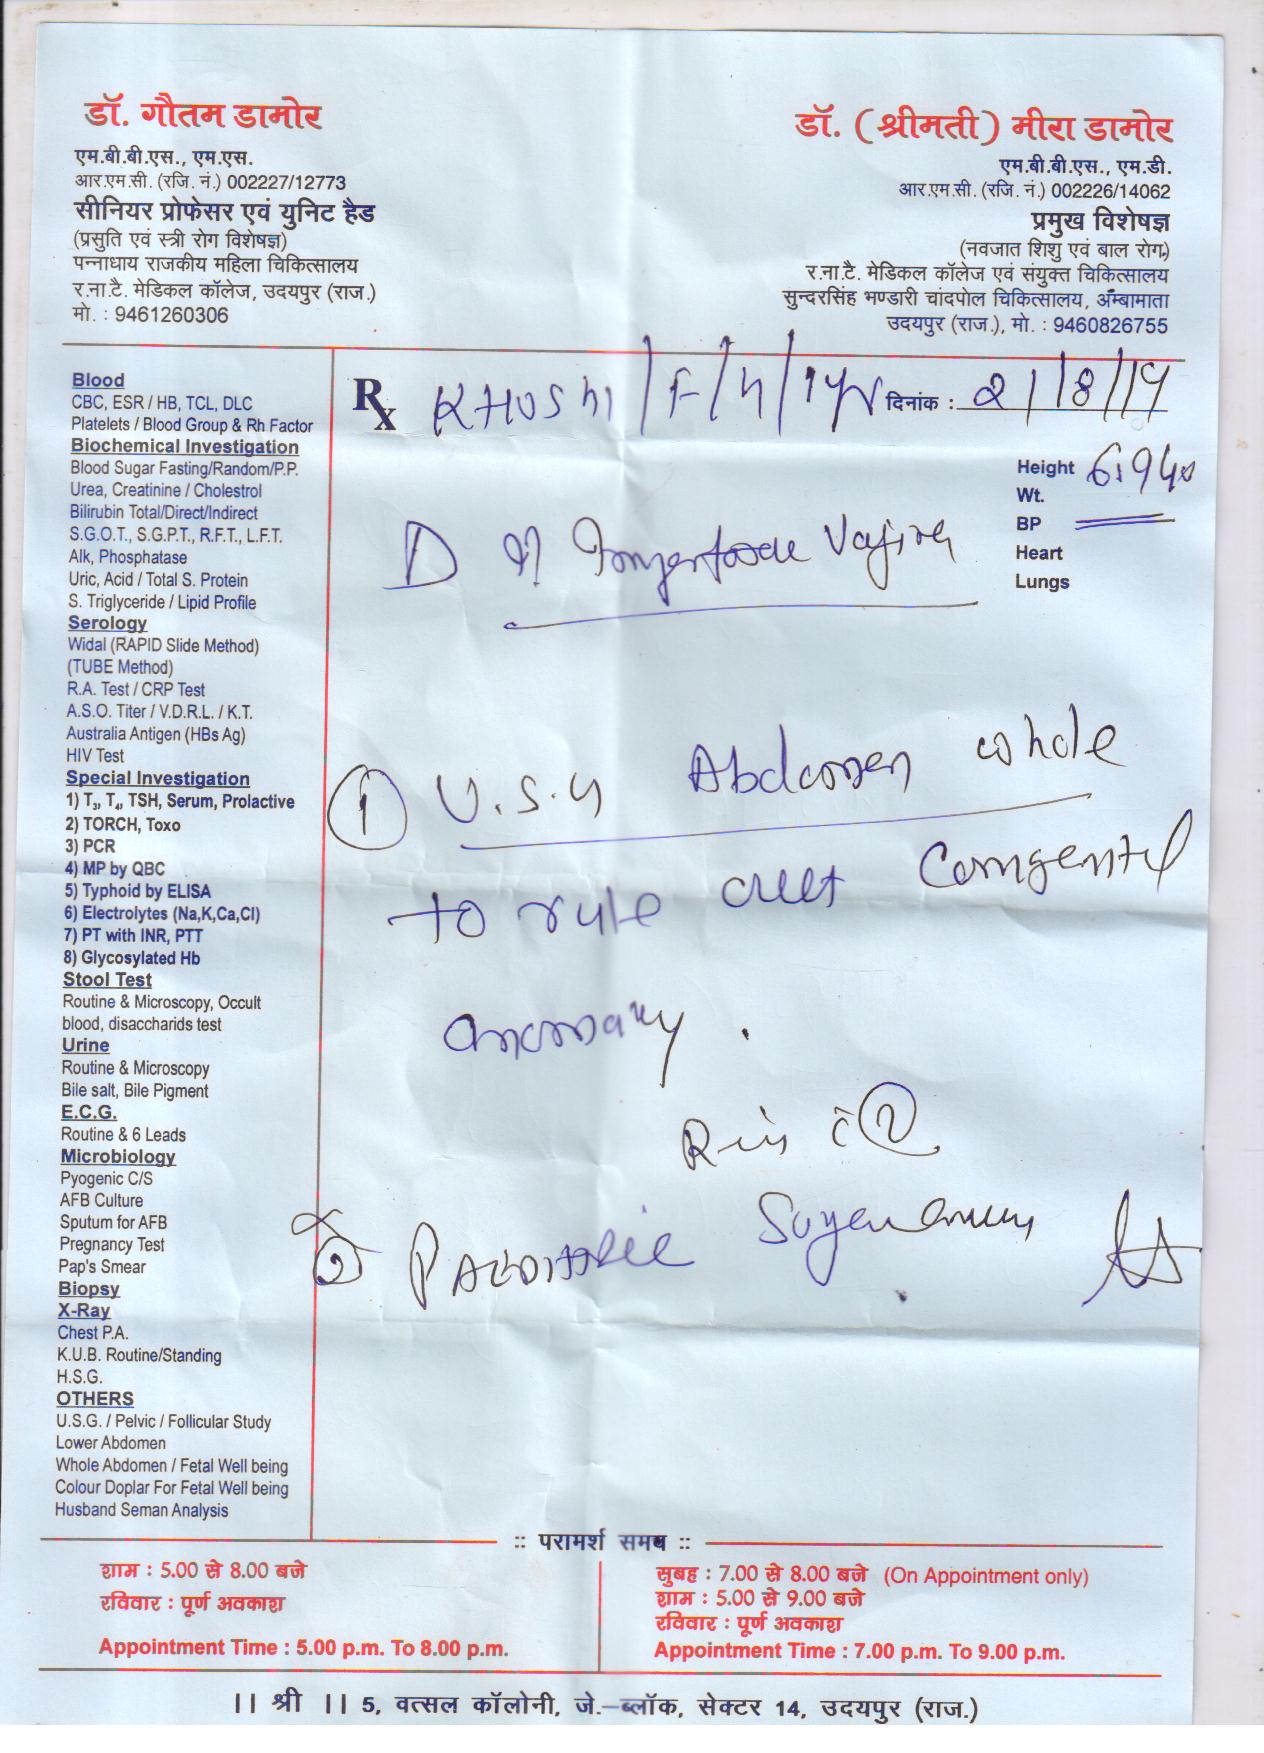 डॉ. गौतम डामोर
एम.बी.बी.एस., एम.एस.
आर.एम.सी. (रजि. नं.) 002227/12773
सीनियर प्रोफेसर एवं युनिट हैड
(प्रसुति एवं स्त्री रोग विशेषज्ञ)
पन्नाधाय राजकीय महिला चिकित्सालय
र.ना.टै. मेडिकल कॉलेज, उदयपुर (राज.)
मो. : 9461260306
डॉ. (श्रीमती) मीरा डामोर
एम.बी.बी.एस., एम.डी.
आर.एम.सी. (रजि. नं.) 002226/14062
प्रमुख विशेषज्ञ
(नवजात शिशु एवं बाल रोग)
र.ना.टै. मेडिकल कॉलेज एवं संयुक्त चिकित्सालय
सुन्दरसिंह भण्डारी चांदपोल चिकित्सालय, अम्बामाता
उदयपुर (राज.), मो. : 9460826755
Blood
CBC, ESR / HB, TCL, DLC
Platelets / Blood Group & Rh Factor
Biochemical Investigation
Blood Sugar Fasting/Random/P.P.
Urea, Creatinine / Cholestrol
Bilirubin Total/Direct/Indirect
S.G.O.T., S.G.P.T., R.F.T., L.F.T.
Alk, Phosphatase
Uric, Acid / Total S. Protein
S. Triglyceride / Lipid Profile
Serology
Widal (RAPID Slide Method)
(TUBE Method)
R.A. Test / CRP Test
A.S.O. Titer / V.D.R.L. / K.T.
Australia Antigen (HBs Ag)
HIV Test
Special Investigation
1) T₃, T₄, TSH, Serum, Prolactive
2) TORCH, Toxo
3) PCR
4) MP by QBC
5) Typhoid by ELISA
6) Electrolytes (Na,K,Ca,Cl)
7) PT with INR, PTT
8) Glycosylated Hb
Stool Test
Routine & Microscopy, Occult
blood, disaccharids test
Urine
Routine & Microscopy
Bile salt, Bile Pigment
E.C.G.
Routine & 6 Leads
Microbiology
Pyogenic C/S
AFB Culture
Sputum for AFB
Pregnancy Test
Pap's Smear
Biopsy
X-Ray
Chest P.A.
K.U.B. Routine/Standing
H.S.G.
OTHERS
U.S.G. / Pelvic / Follicular Study
Lower Abdomen
Whole Abdomen / Fetal Well being
Colour Doplar For Fetal Well being
Husband Seman Analysis
Rx KHUSHI / F / दिनांक : 2/8/19
Height
Wt.
BP
Heart
Lungs
① U.S.G Abdomen whole
to rule out
② 
:: परामर्श समय ::
शाम : 5.00 से 8.00 बजे
रविवार : पूर्ण अवकाश
Appointment Time : 5.00 p.m. To 8.00 p.m.
सुबह : 7.00 से 8.00 बजे (On Appointment only)
शाम : 5.00 से 9.00 बजे
रविवार : पूर्ण अवकाश
Appointment Time : 7.00 p.m. To 9.00 p.m.
|| श्री || 5, वत्सल कॉलोनी, जे.-ब्लॉक, सेक्टर 14, उदयपुर (राज.)